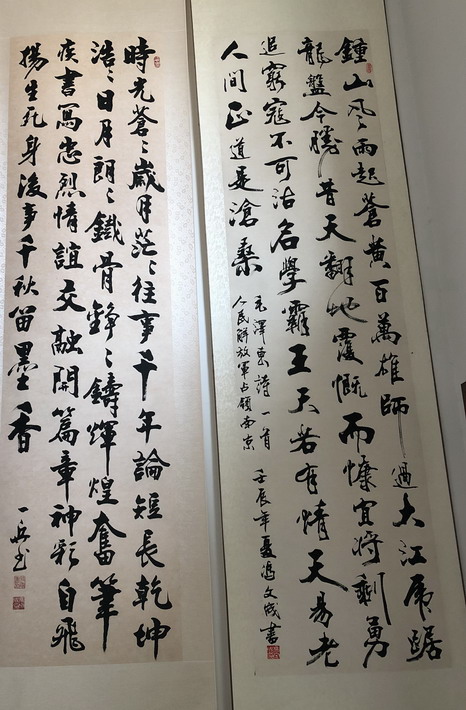 鍾山風雨起蒼黄百萬雄師過大江虎踞
龍盤今勝昔天翻地覆慨而慷宜将剩勇
追窮寇不可沽名學霸王天若有情天易老
人间正道是滄桑
毛澤東詩一首
人民解放軍占領南京
壬辰年夏馮文成書
時光蒼〻歲月茫〻往事千年論短長乾坤
浩〻日月朗〻鐵骨錚〻鑄輝煌奮筆
疾書寫忠烈情誼交融開篇章神彩自飛
揚生死身後事千秋留墨香